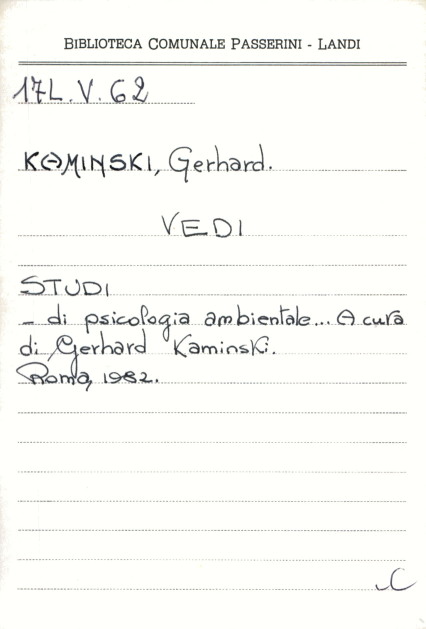 BIBLIOTECA COMUNALE PASSERINI - LANDI
17L.V.62
KAMINSKI, Gerhard.
VEDI
STUDI
- di psicologia ambientale... A cura
di Gerhard Kaminski.
Roma, 1982.
C